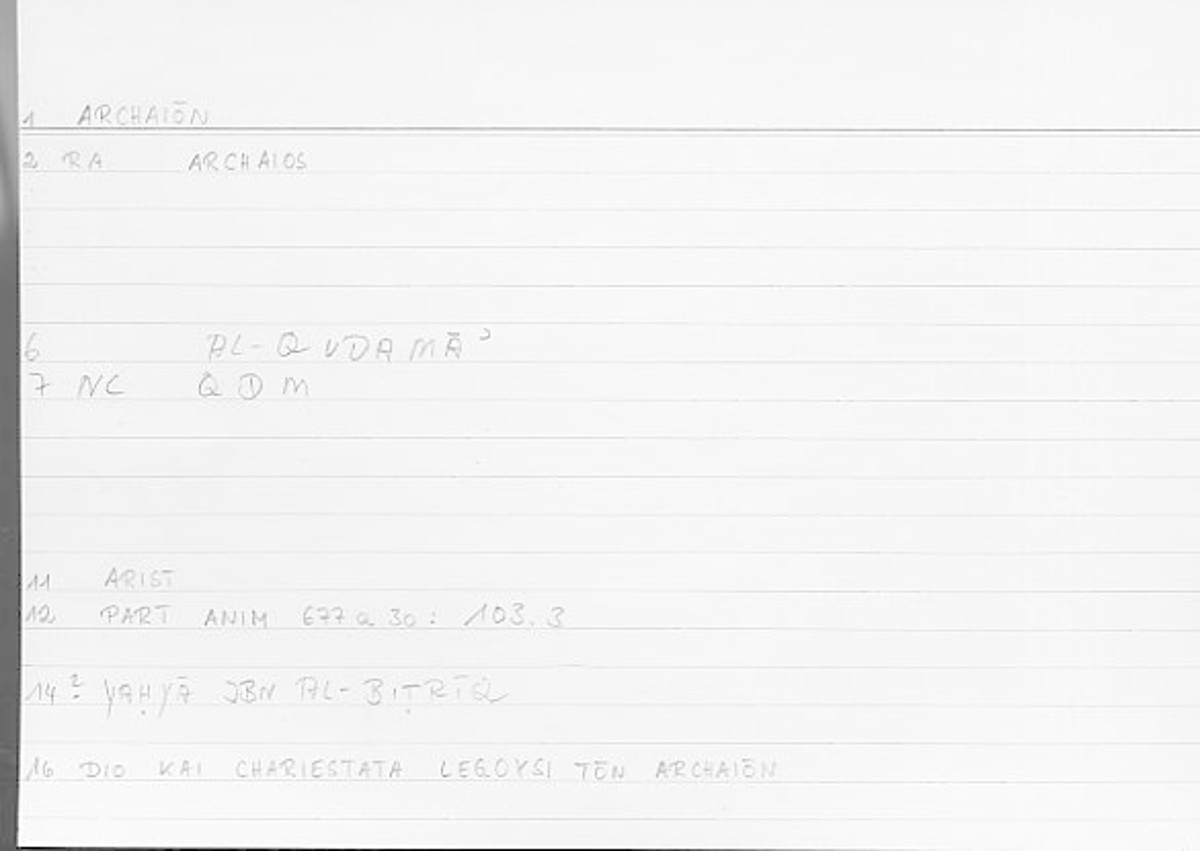 1 ARCHAIŌN
2 RA ARCHAIOS
6 AL-QUDAMĀʾ
7 NC QDM
11 ARIST
12 PART ANIM 677 a 30: 103.3
14 ? YAḤYĀ IBN AL-BIṬRĪQ
16 DIO KAI CHARIESTATA LEGOYSI TŌN ARCHAIŌN